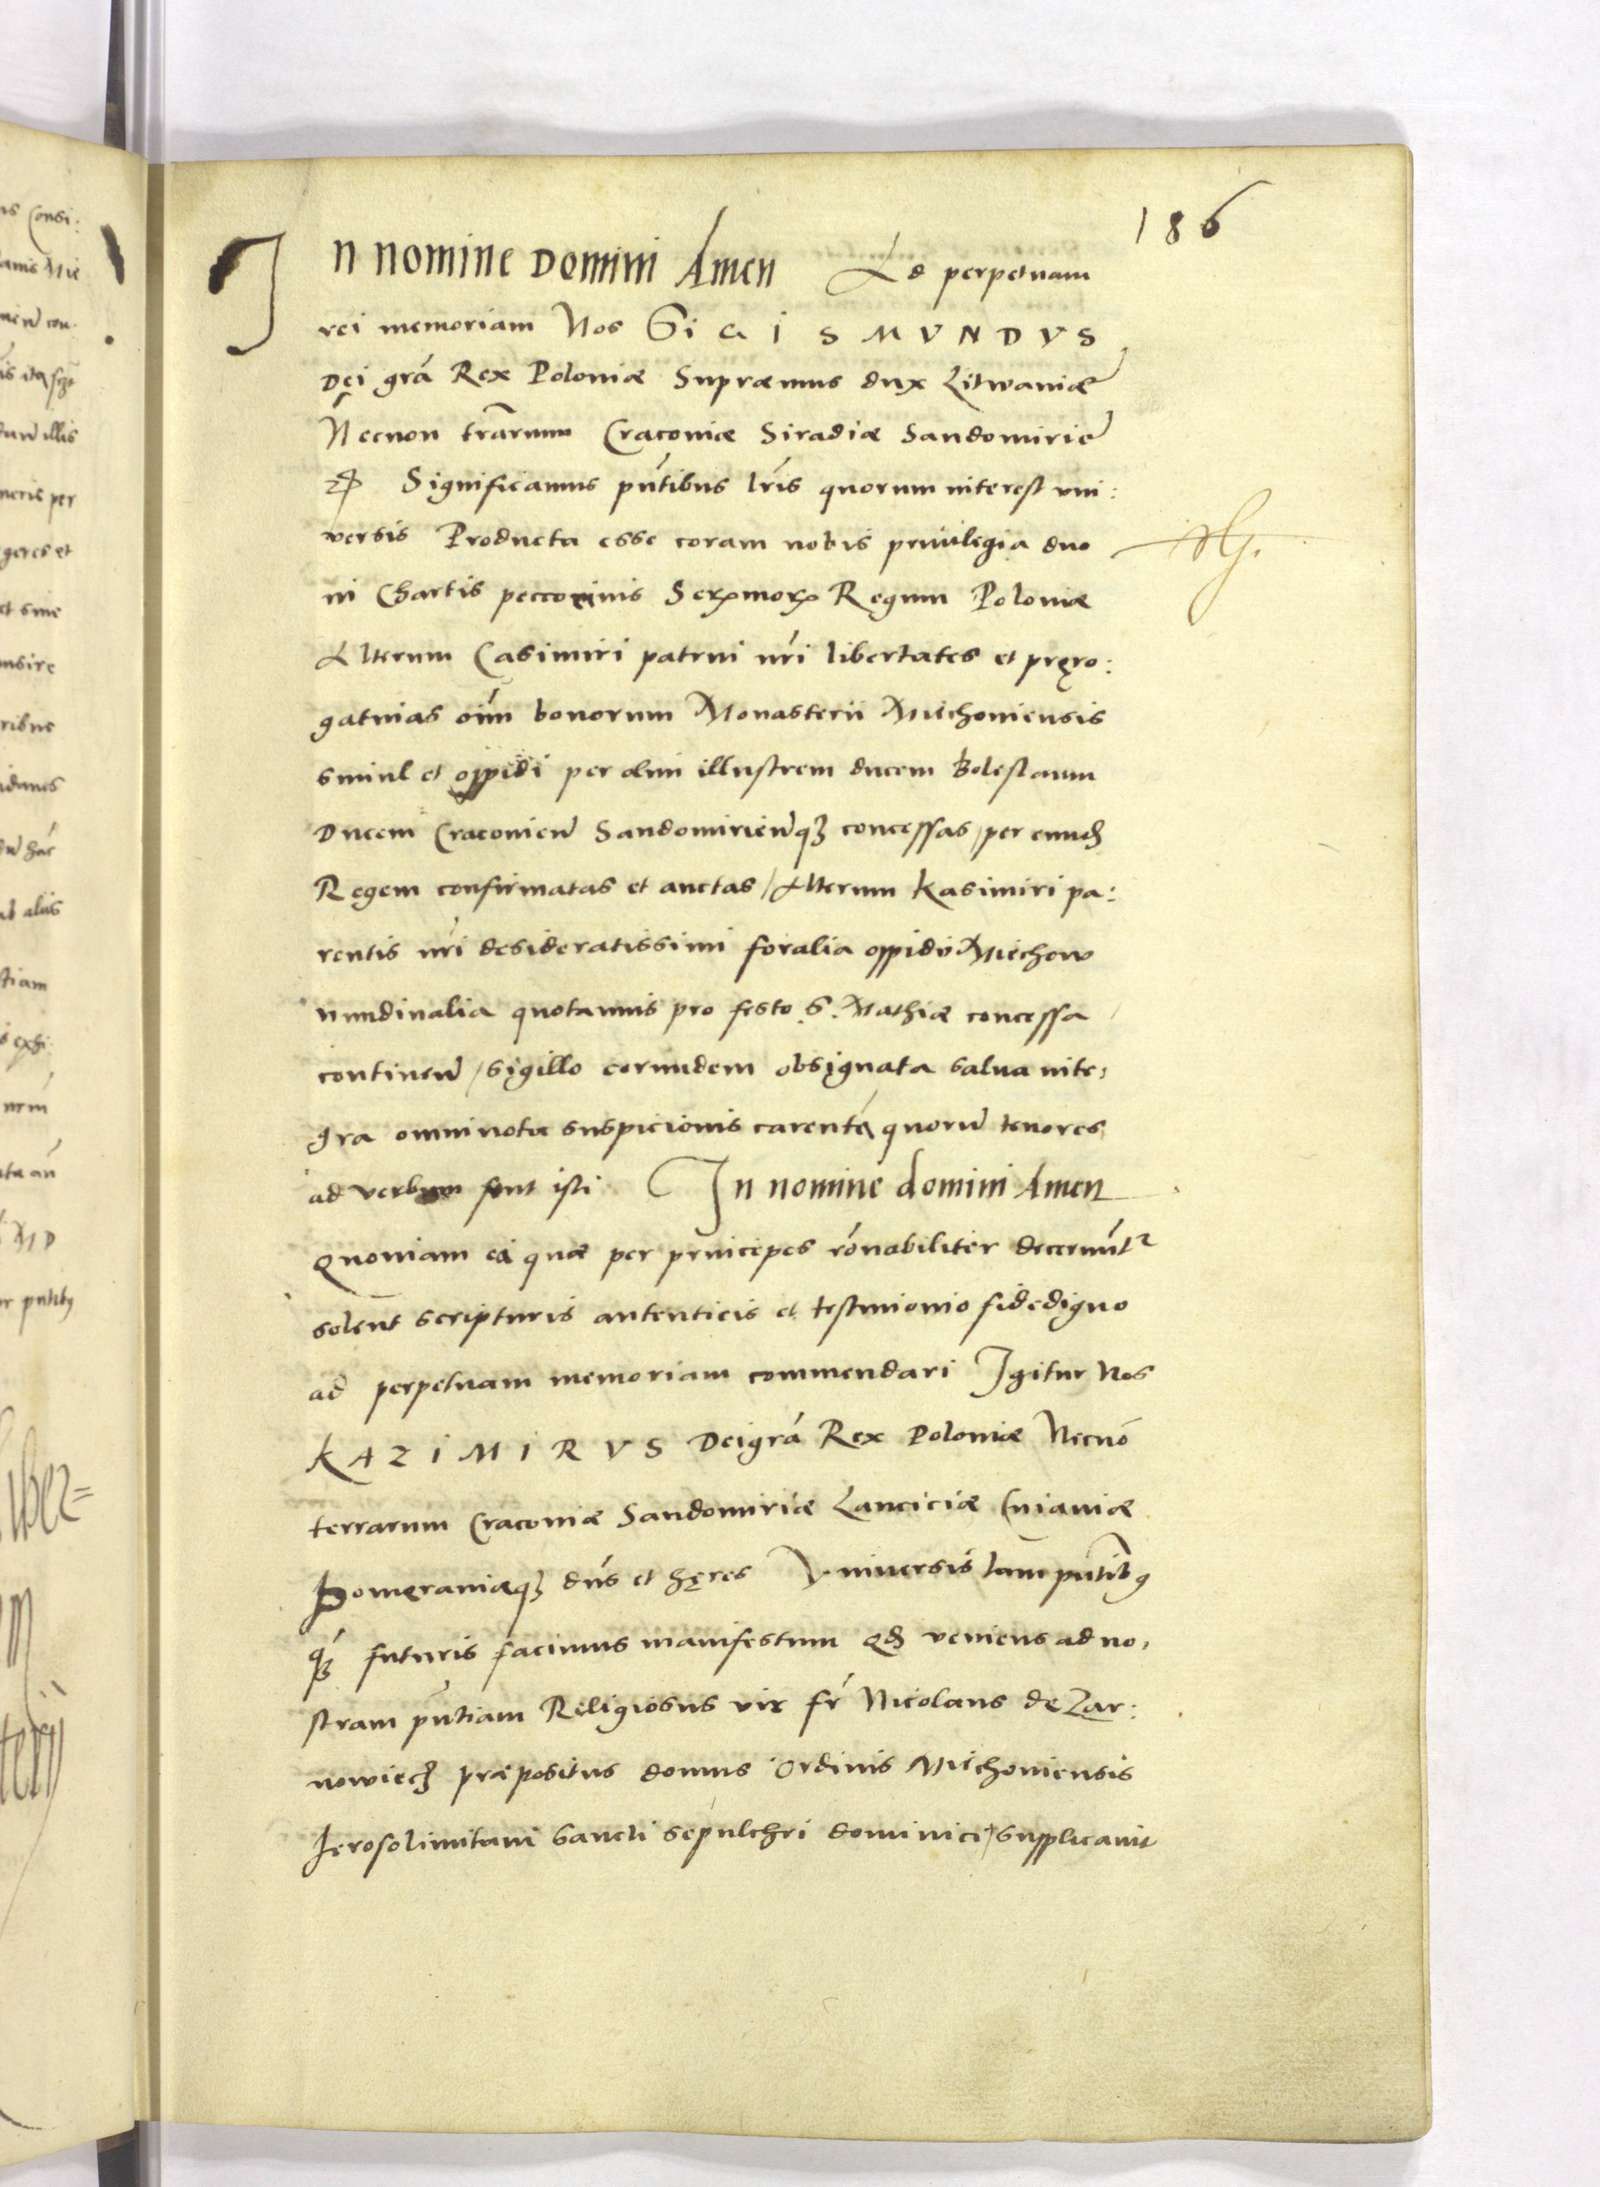 186
In nomine Domini Amen Ad perpetuam
rei memoriam Nos SiGISMVNDVS
Dei grã Rex Poloniæ Supræmus dux Litwaniæ
Necnon trãrum Cracoviæ Siradiæ Sandomirie
Significamus pñtibus lris quorum interest vni:
versis Producta esse coram nobis privilegia duo
in Chartis peccorinis Ser~mor~ Regum Poloniæ
Alterum Casimiri patrui nri libertates et pręro:
gatuias oim bonorum Monasterii Miechouiensis
simul et oppidi per olim illustrem ducem Boleslaum
Ducem Cracouien Sandomirienq3 concessas, per eund
Regem confirmatas et auctas / Alterum Kasimiri pa:
rentis nri desideratissimi foralia oppidi Miechow
nundinalia quotannis pro festo S. Mathiæ concessa
continen / sigillo eorundem obsignata salua inte,
gra omni nota suspicionis carentia quoru tenores
ad verbum sunt isti In nomine domini Amen
Quoniam ea quæ per principes rõnabiliter decernunt~
solent scripturis autenticis et testimonio fidedigno
ad perpetuam memoriam commendari Igitur Nos
KAZIMIRVS Dei grã Rex Poloniæ Necnõ
terrarum Cracouiæ Sandomiriæ Lanciciæ Cuiauiæ
Pomęraniæq3 dns et hęres Vniuersis tam pñtib9
q3 futuris facimus manifestum qd veniens ad no,
stram pñtiam Religiosus vir fr Nicolaus de Zar:
nowiecz præpositus domus Ordinis Miechouiensis
Ierosolimitani Sancti Sepulchri dominici, supplicauit